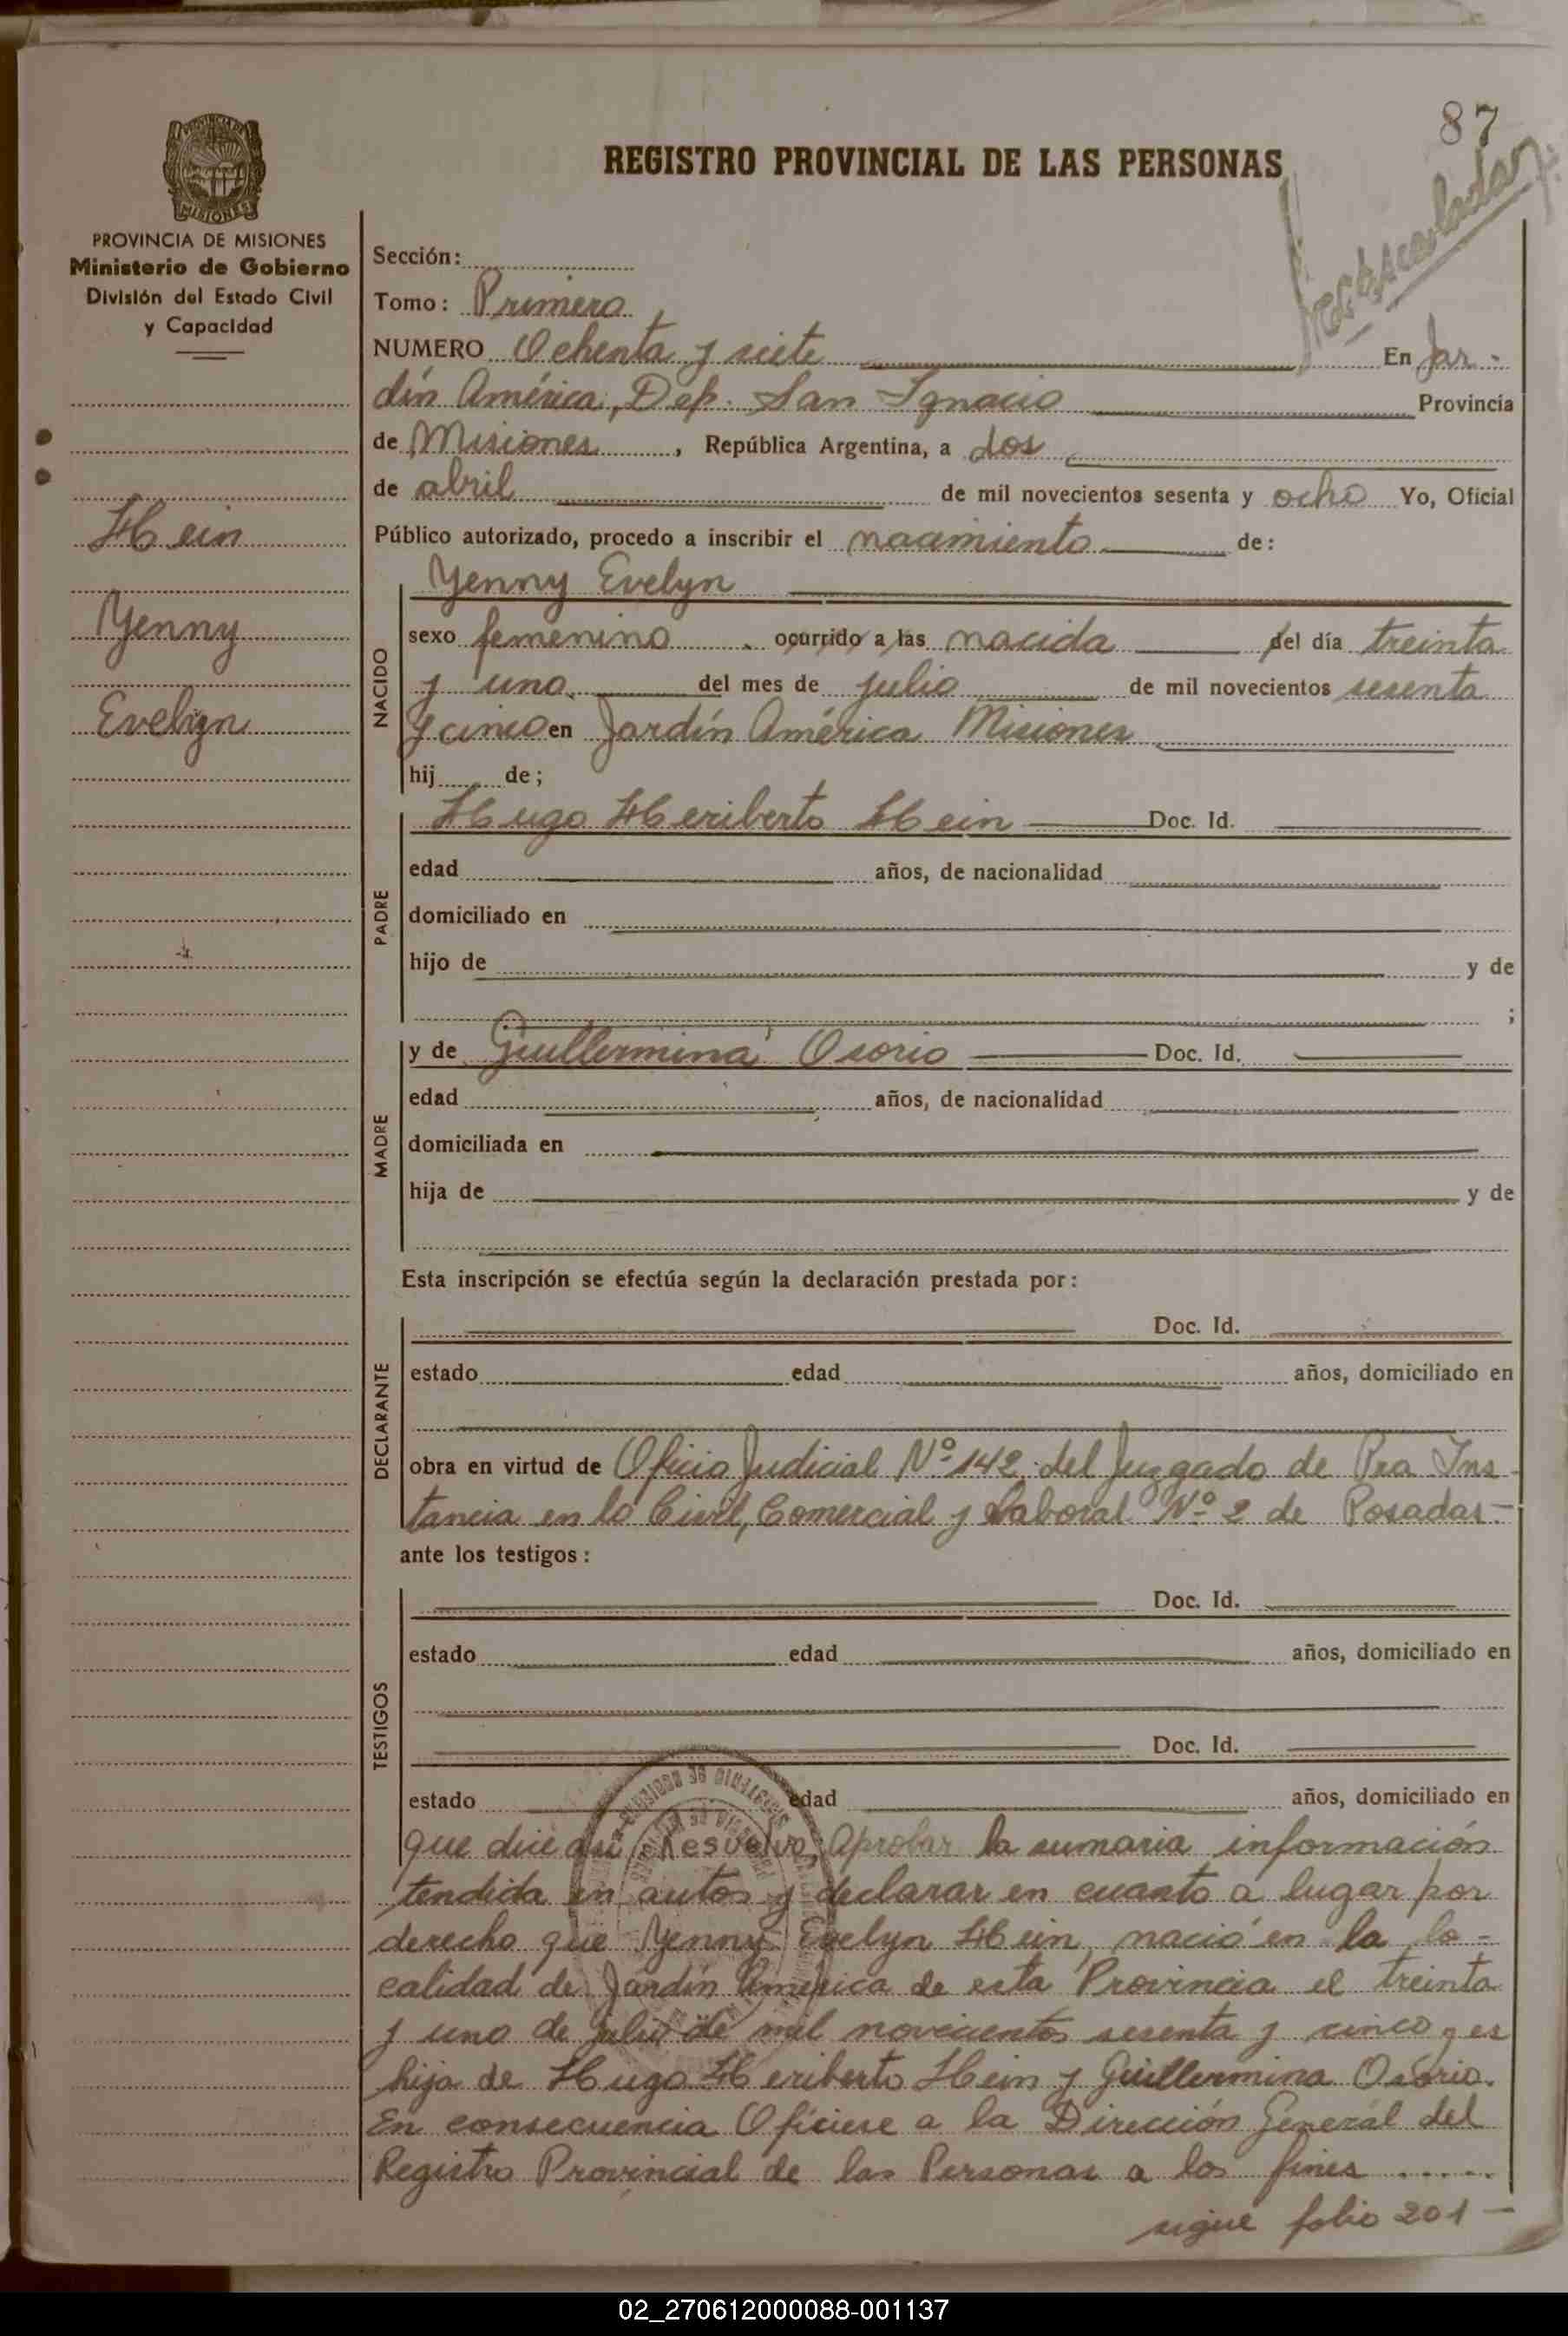 87
REGISTRO PROVINCIAL DE LAS PERSONAS
MISIONES
PROVINCIA DE MISIONES
Ministerio de Gobierno
División del Estado Civil
y Capacidad
Hein
Yenny
Evelyn
Sección:
Tomo: Primero
NUMERO Ochenta y siete En Jar-
dín América, Dep. San Ignacio Provincia
de Misiones, República Argentina, a dos
de abril de mil novecientos sesenta y ocho Yo, Oficial
Público autorizado, procedo a inscribir el nacimiento de:
Yenny Evelyn
NACIDO
sexo femenino ocurrido a las nacida del día treinta
y uno del mes de julio de mil novecientos sesenta
y cinco en Jardín América Misiones
hij de;
PADRE
Hugo Heriberto Hein Doc. Id.
edad años, de nacionalidad
domiciliado en
hijo de y de
;
MADRE
y de Guillermina Osorio Doc. Id.
edad años, de nacionalidad
domiciliada en
hija de y de
Esta inscripción se efectúa según la declaración prestada por:
DECLARANTE
Doc. Id.
estado edad años, domiciliado en
obra en virtud de Oficio Judicial Nº 142 del Juzgado de Pra Ins-
tancia en lo Civil, Comercial y Laboral Nº 2 de Posadas-
ante los testigos:
TESTIGOS
Doc. Id.
estado edad años, domiciliado en
Doc. Id.
estado edad años, domiciliado en
que dice así Resuelvo, Aprobar la sumaria información
tendida en autos y declarar en cuanto a lugar por
derecho que Yenny Evelyn Hein, nació en la lo-
calidad de Jardín América de esta Provincia el treinta
y uno de julio de mil novecientos sesenta y cinco y es
hija de Hugo Heriberto Hein y Guillermina Osorio.
En consecuencia Ofíciese a la Dirección General del
Registro Provincial de las Personas a los fines ......
sigue folio 201-
02_270612000088-001137